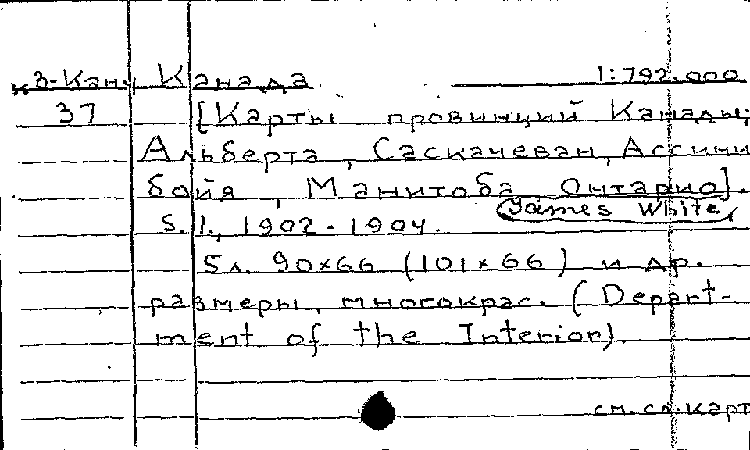 к3-Кан. Канада 1:792.000
37 [Карты провинций Канады,
Альберта, Саскачеван, Ассини
бойя, Манитоба Онтарио].
James White,
S.l., 1902-1904.
5 л. 90×66 (101×66) и др.
размеры, многокрас. (Depart-
ment of the Interior)
см. сл. карт